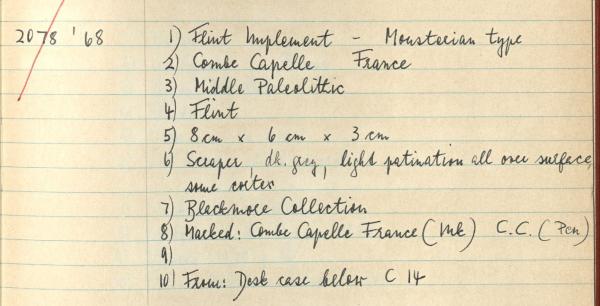 2078 '68 1) Flint Implement - Mousterian type
2) Combe Capelle France
3) Middle Paleolithic
4) Flint
5) 8 cm x 6 cm x 3 cm
6) Scraper, dk. grey, light patination all over surface,
some cortex
7) Blackmore Collection
8) Marked: Combe Capelle France (Ink) C.C. (Pen)
9)
10) From: Desk case below C 14